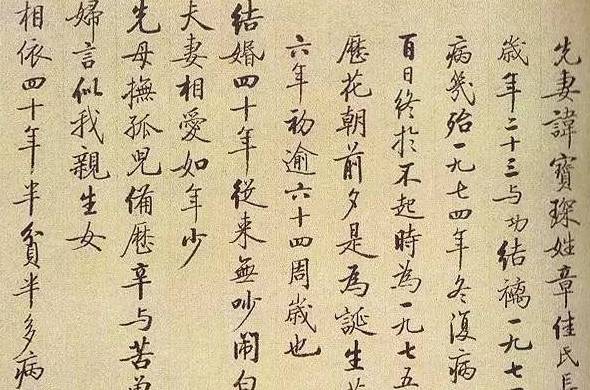 先妻諱寶琛姓章佳氏長
歲年二十三与功結褵一九七
病幾殆一九七四年冬復病
百日終於不起時為一九七五
歷花朝前夕是為誕生
六年初逾六十四周歲也
結婚四十年從來無吵鬧白
夫妻相愛如年少
先母撫孤兒備歷辛与苦
婦言似我親生女
相依四十年半貧半多病